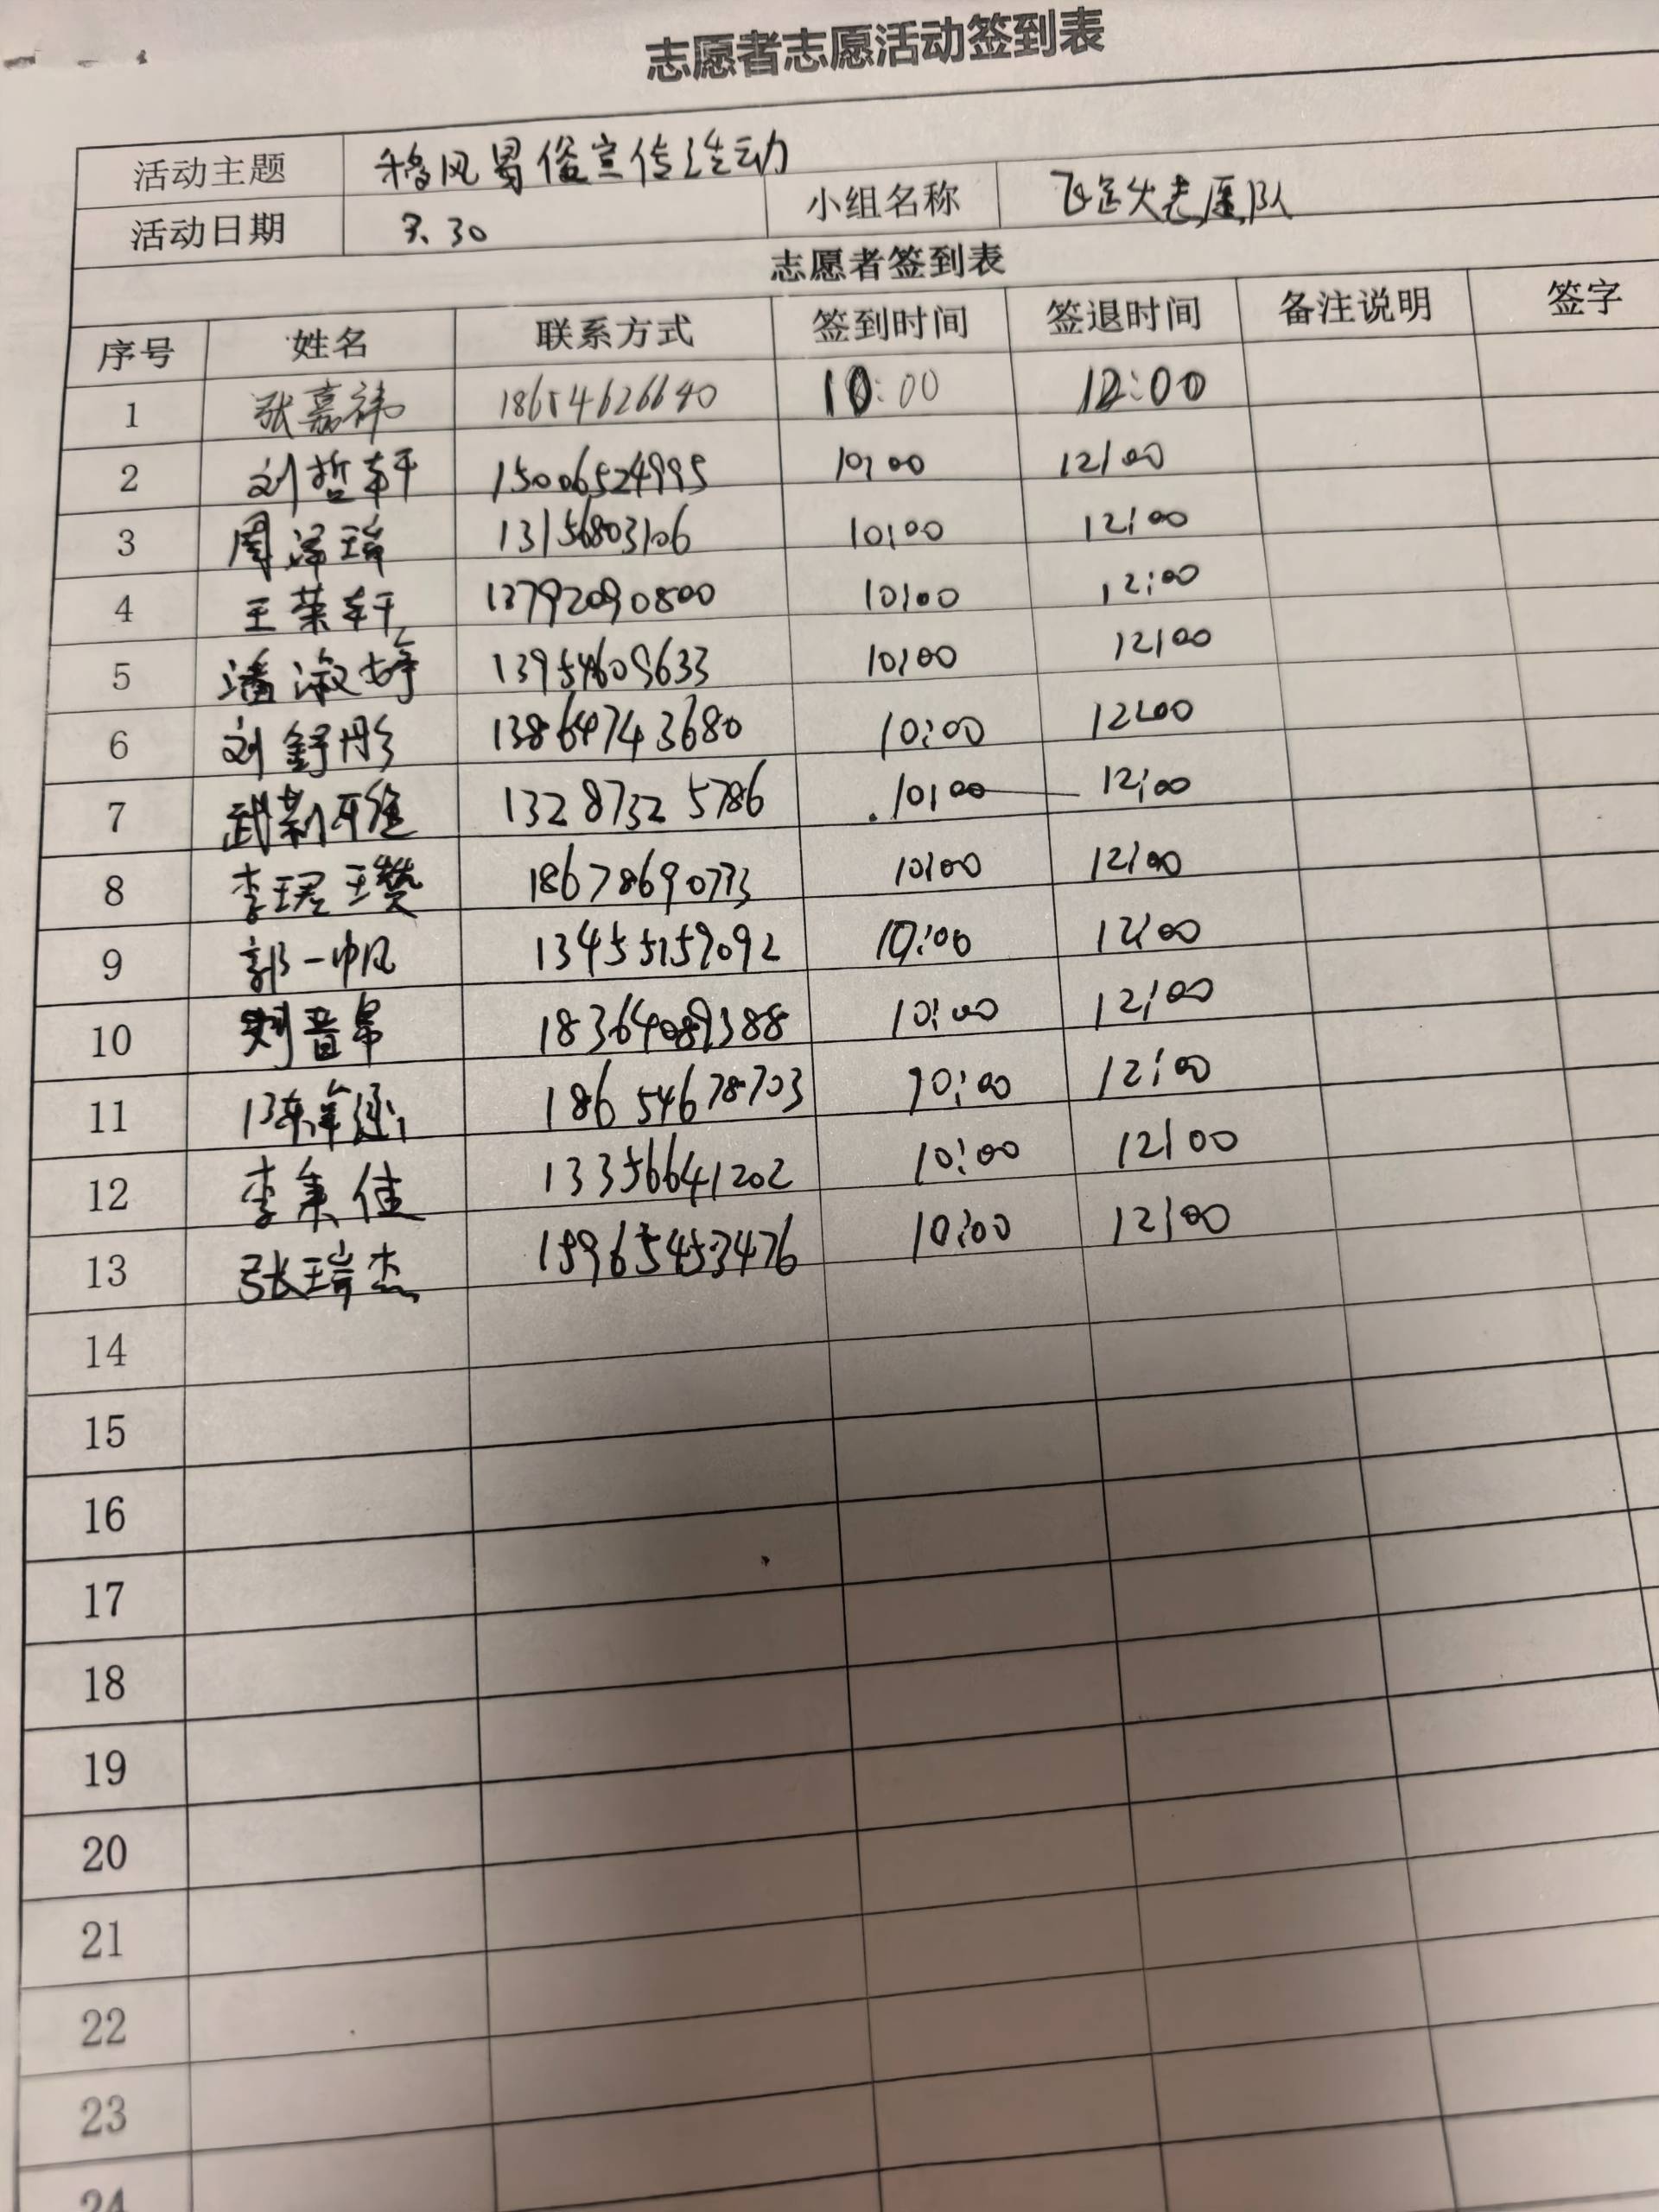 志愿者志愿活动签到表
活动主题 移风易俗宣传活动
活动日期 3.30 小组名称 志愿队
志愿者签到表
序号 姓名 联系方式 签到时间 签退时间 备注说明 签字
1 张嘉祎 18654626640 10:00 12:00
2 刘哲轩 15006524995 10:00 12:00
3 周泽瑞 13156803106 10:00 12:00
4 王荣轩 13792090800 10:00 12:00
5 潘淑婷 13954609633 10:00 12:00
6 刘舒彤 13864743680 10:00 12:00
7 武 13287325786 10:00 12:00
8 李珺瓒 18678690773 10:00 12:00
9 郭一帆 13455159092 10:00 12:00
10 刘音 18364089388 10:00 12:00
11 陈 18654678703 10:00 12:00
12 李秉佳 13356641202 10:00 12:00
13 张瑞杰 15965453476 10:00 12:00
14
15
16
17
18
19
20
21
22
23
24